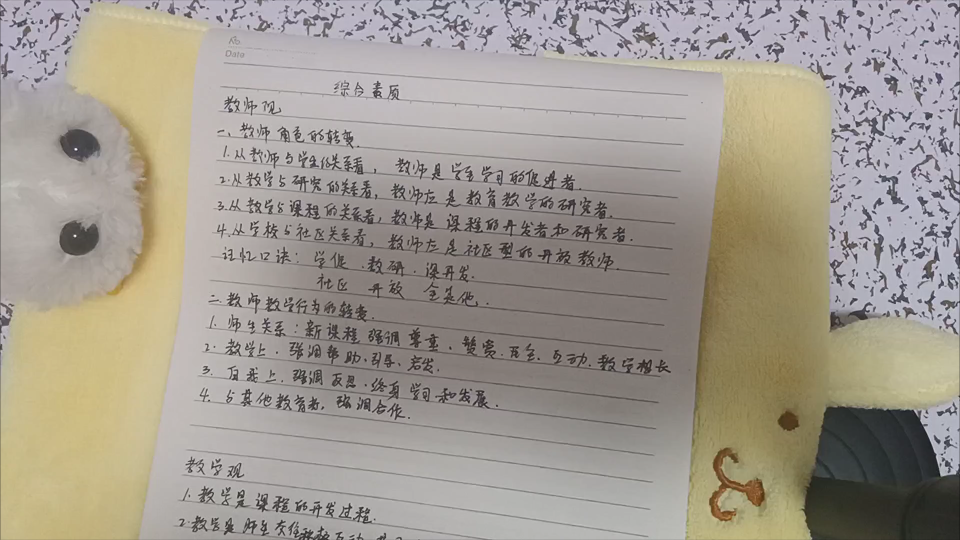 No.
Date
综合素质
教师观
一、教师角色的转变.
1.从教师与学生的关系看，教师是学生学习的促进者.
2.从教学与研究的关系看，教师应是教育教学的研究者.
3.从教学与课程的关系看，教师是课程的开发者和研究者.
4.从学校与社区关系看，教师应是社区型的开放教师.
记忆口诀：学促、教研、课开发.
社区 开放 全靠他.
二.教师教学行为的转变
1. 师生关系：新课程强调尊重、赞赏.民主.互动.教学相长
2. 教学上、强调帮助、引导、启发.
3. 自我上、强调反思、终身学习和发展.
4. 与其他教育者，强调合作.
教学观
1.教学是课程的开发过程.
2.教学是师生交往积极互动、